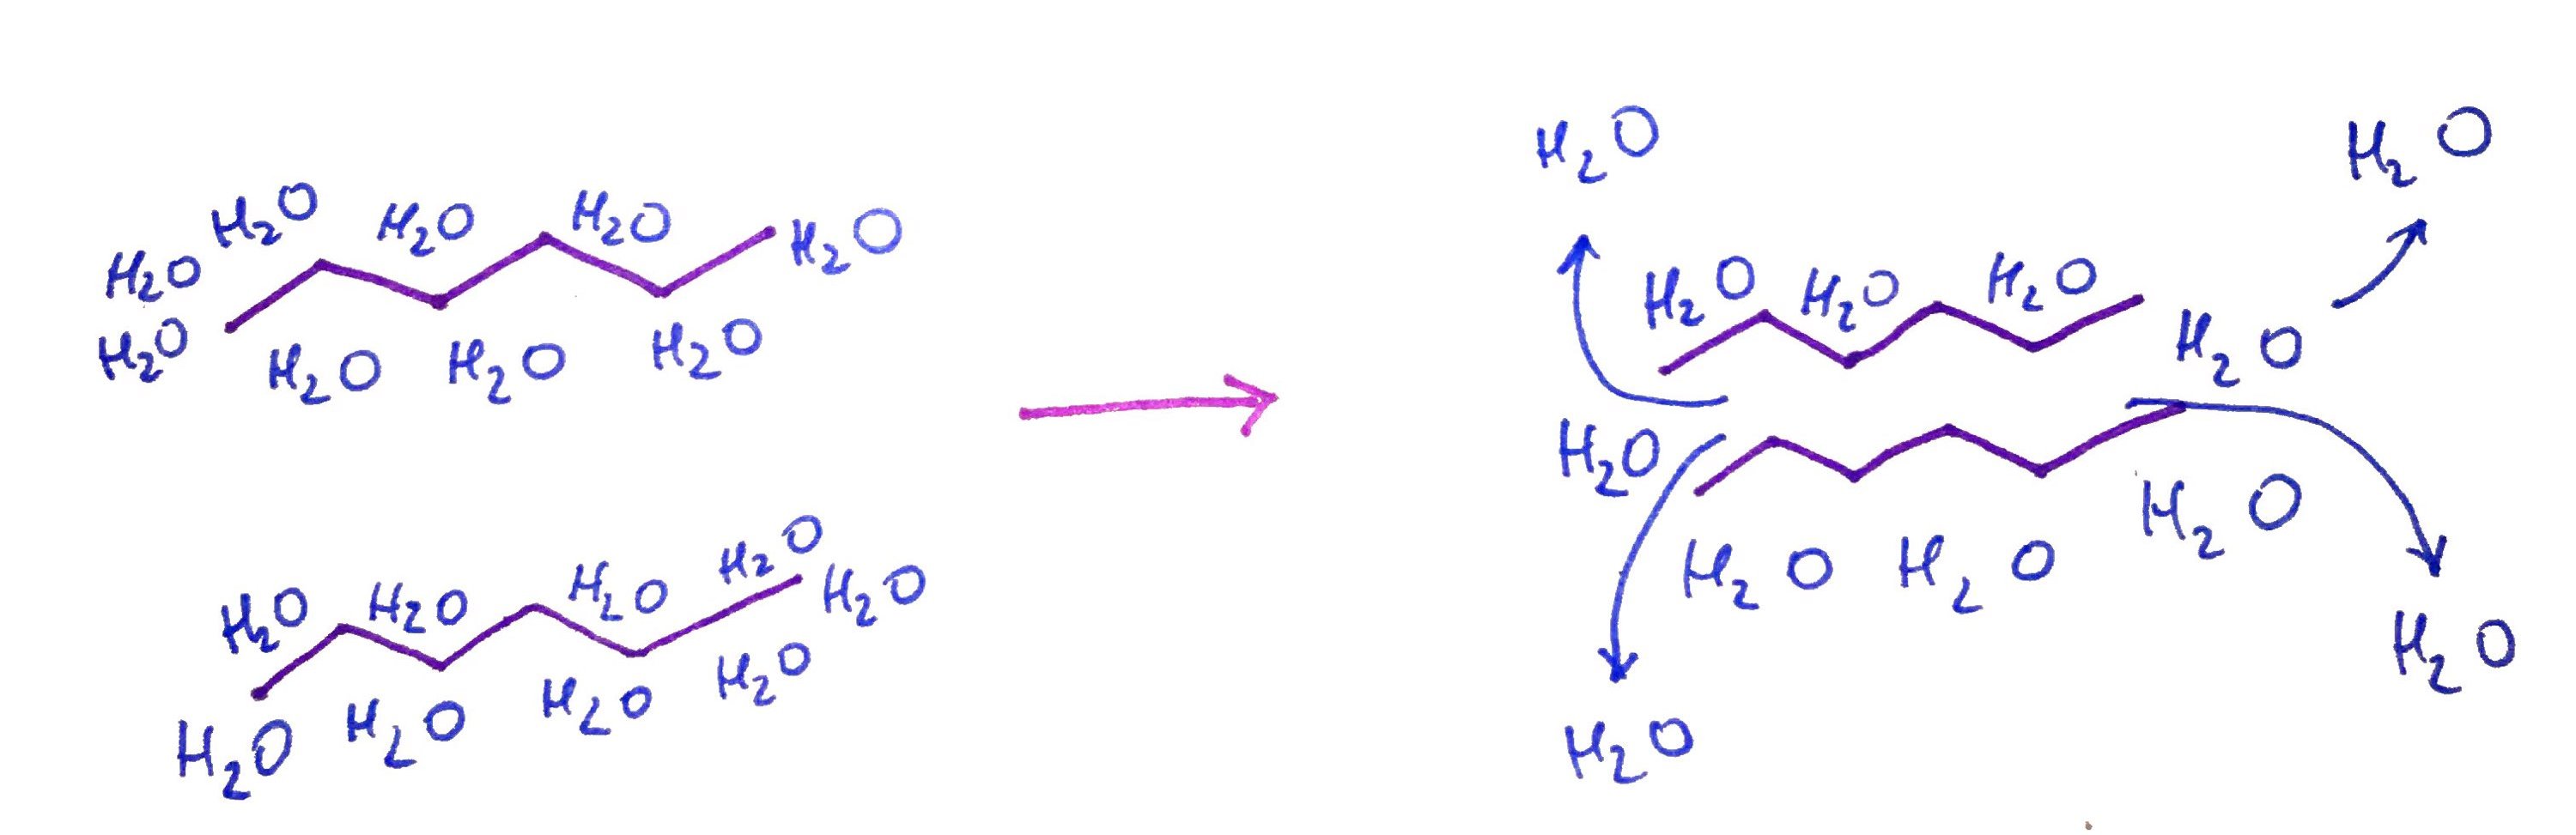 H₂O H₂O H₂O H₂O H₂O
H₂O H₂O H₂O H₂O
H₂O H₂O H₂O H₂O H₂O
H₂O H₂O H₂O H₂O
H₂O H₂O
H₂O H₂O H₂O H₂O
H₂O
H₂O H₂O H₂O
H₂O H₂O